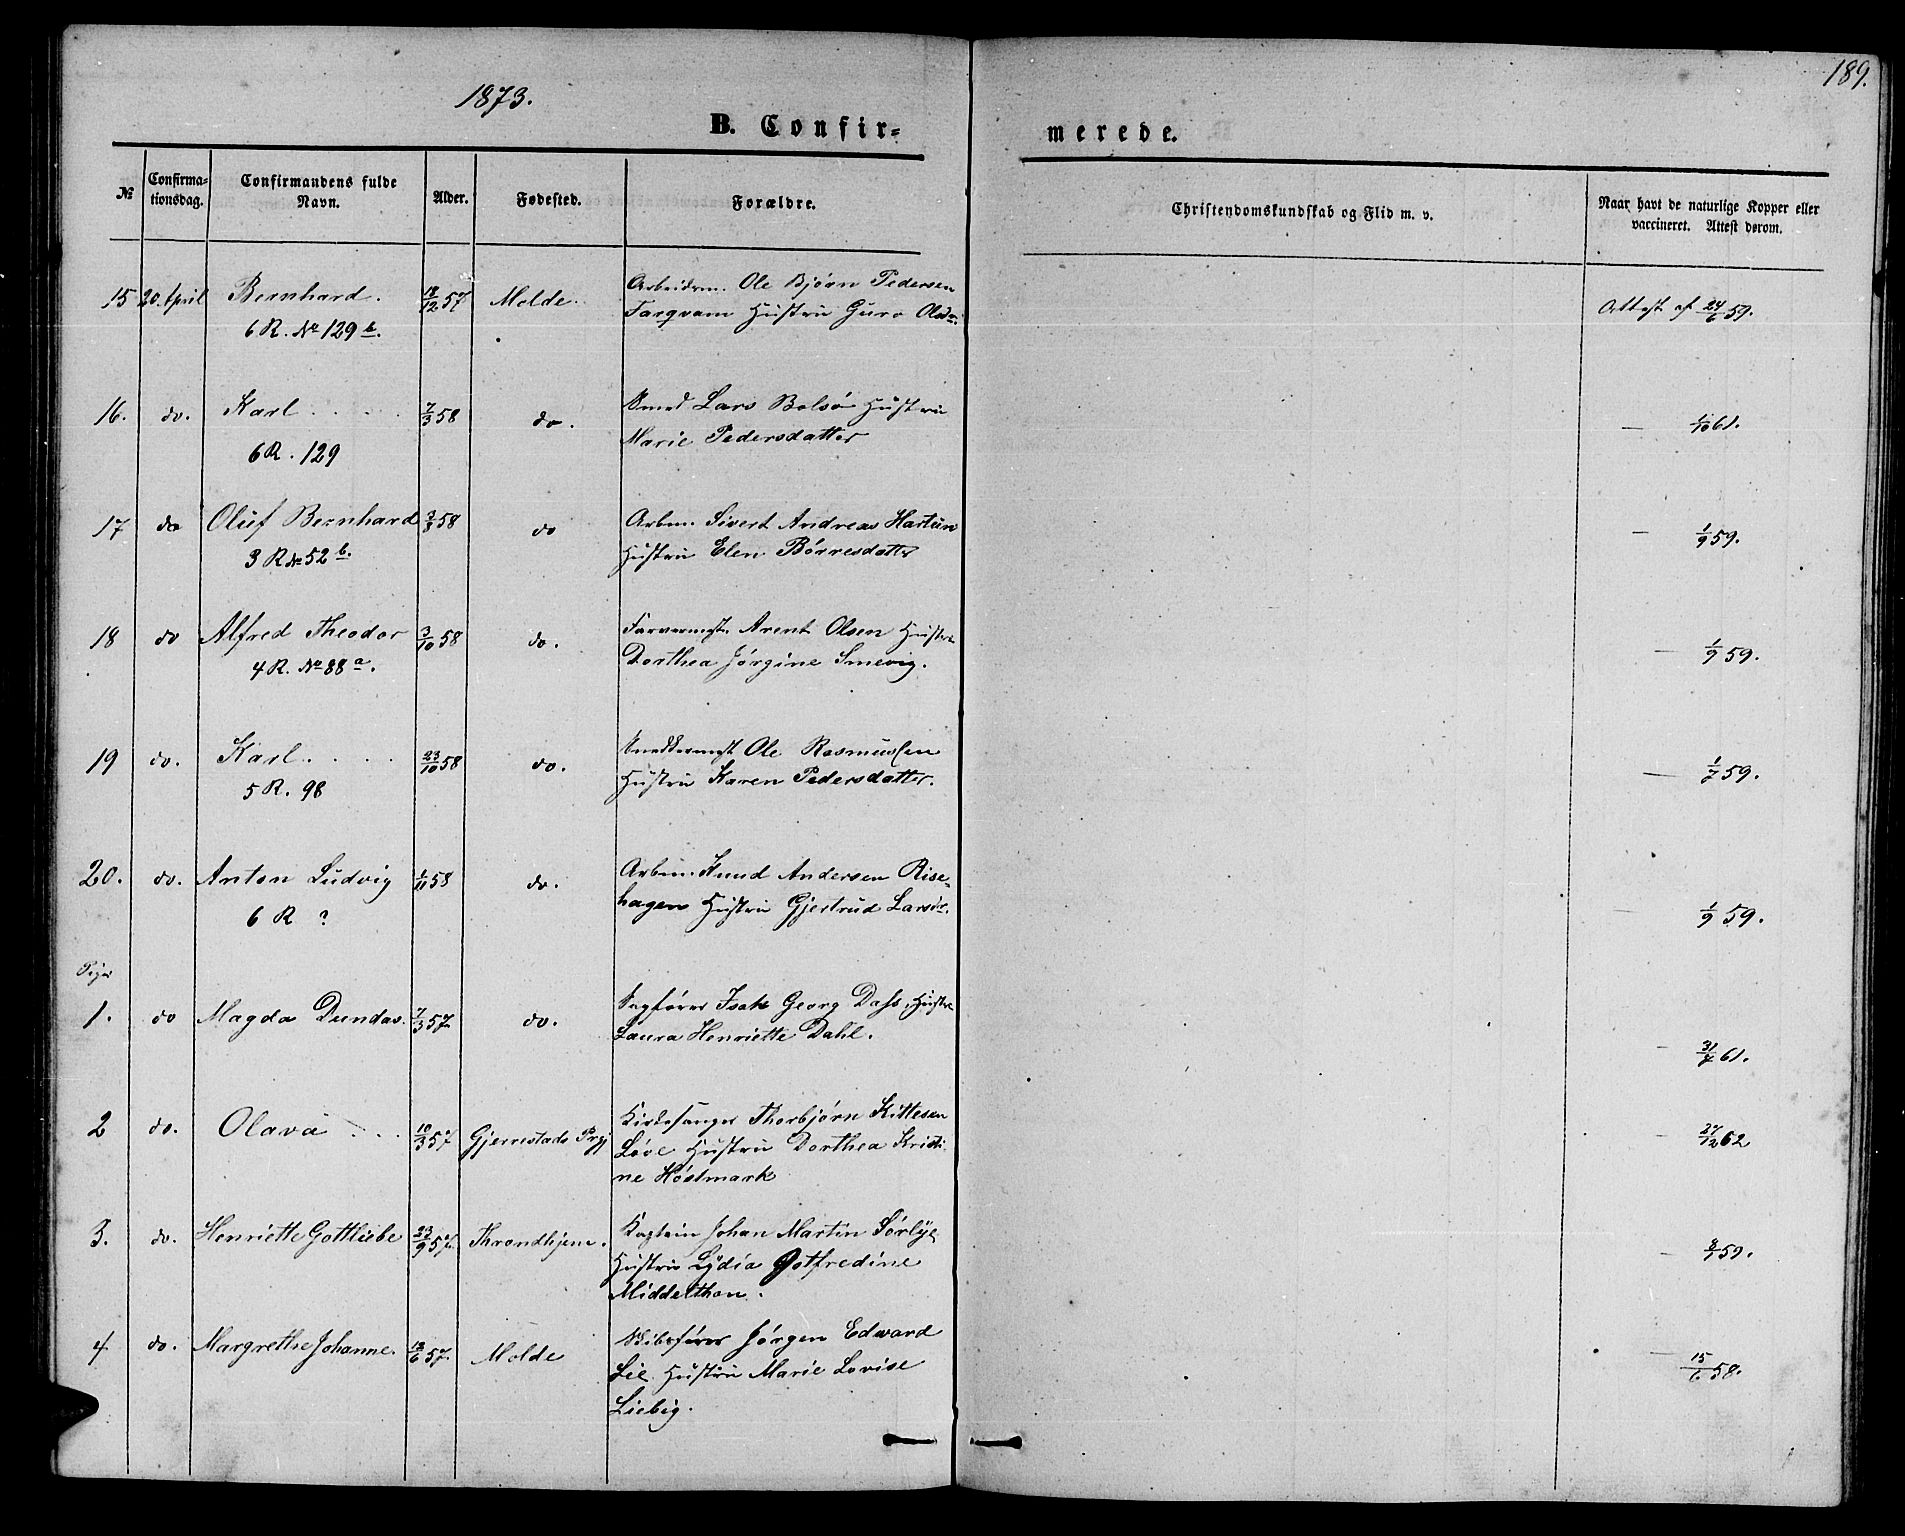 1873.
189.
B. Confir=
merede.
№
Confirma=
tionsdag.
Confirmandens fulde
Navn.
Alder.
Fødested.
Forældre.
Christendomskundskab og Flid m. v.
Naar havt de naturlige Kopper eller
vaccineret. Attest derom.
15 20. April Bernhard. 18/12 57 Molde. Arbeidsm. Ole Bjørn Pedersen
6 R. No 129 b. Farqvam Hustru Guro Olsdr. Attest af 24/6 59.
16. do. Karl . . . . 7/3 58 do. Smed Lars Bolsø Hustru
6 R. 129 Marie Pedersdatter — 1/10 61.
17 do Oluf Bernhard 3/8 58 do Arbm. Sivert Andreas Hartun
3 R No 52 b. Hustru Elen Børresdatter — 1/9 59.
18 do Alfred Theodor 3/10 58 do. Farvermstr. Arent Olsen Hustru
4 R. No 88 a. Dorthea Jørgine Smevig. — 1/9 59.
19 do. Karl . . . . 23/10 58 do. Snedkermst Ole Rasmussen
5 R. 98 Hustru Karen Pedersdatter. — 1/7 59.
20. do. Anton Ludvig 1/11 58 do. Arbm. Knud Andersen Rise=
6 R ? hagen Hustru Gjertrud Larsdr. — 1/9 59.
Piger
1. do Magda Dundas. 7/3 57. do. Sagfører Isak Georg Dass, Hustru
Laura Henriette Dahl. — 31/7 61.
2 do. Olava . . . 10/3 57 Gjerrestads Prgj Kirkesanger Thorbjørn Kittesen
Løve Hustru Dorthea Kristi- — 27/12 62
ne Høstmark
3. do. Henriette Gottliebe 23/9 57. Throndhjem. Kaptein Johan Martin Sørlye
Hustru Lydia Gotfredine — 8/7 59.
Middelthon.
4 do. Margrethe Johanne. 12/6 57. Molde Skibsfører Jørgen Edward
Lie. Hustru Marie Lovise — 15/6 58.
Liebig.